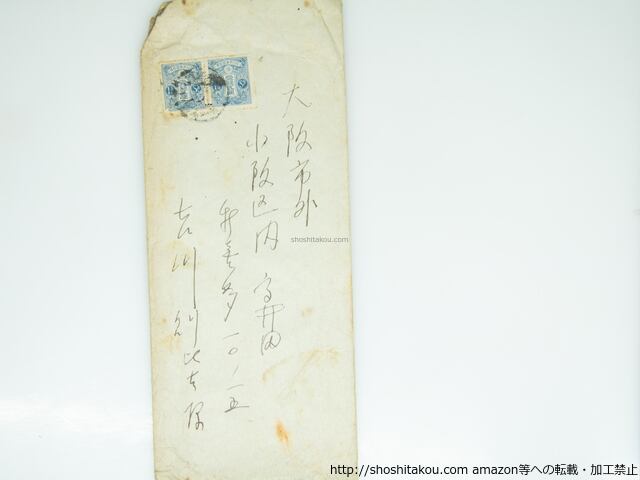 大阪市外
小阪区内 高井田
一〇ノ一五
吉川則比古様
shoshitakou.com
http://shoshitakou.com amazon等への転載・加工禁止